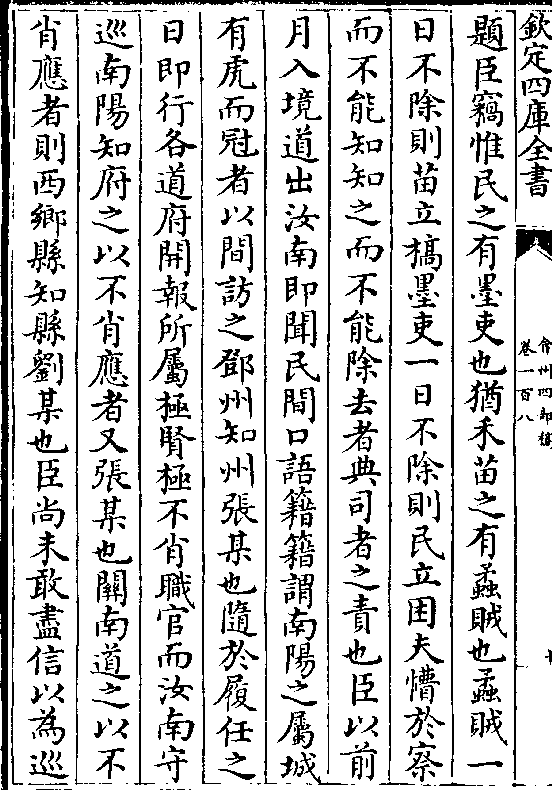 欽定四庫全書
弇州四部稿
卷一百八
題臣竊惟民之有墨吏也猶禾苗之有蟊賊也蟊賊一
日不除則苗立槁墨吏一日不除則民立困夫懵於察
而不能知知之而不能除去者典司者之責也臣以前
月入境道出汝南即聞民間口語籍籍謂南陽之屬城
有虎而冠者以間訪之鄧州知州張某也隨於履任之
日即行各道府開報所屬極賢極不肖職官而汝南守
巡南陽知府之以不肖應者又張某也關南道之以不
肖應者則西鄉縣知縣劉某也臣尚未敢盡信以為巡